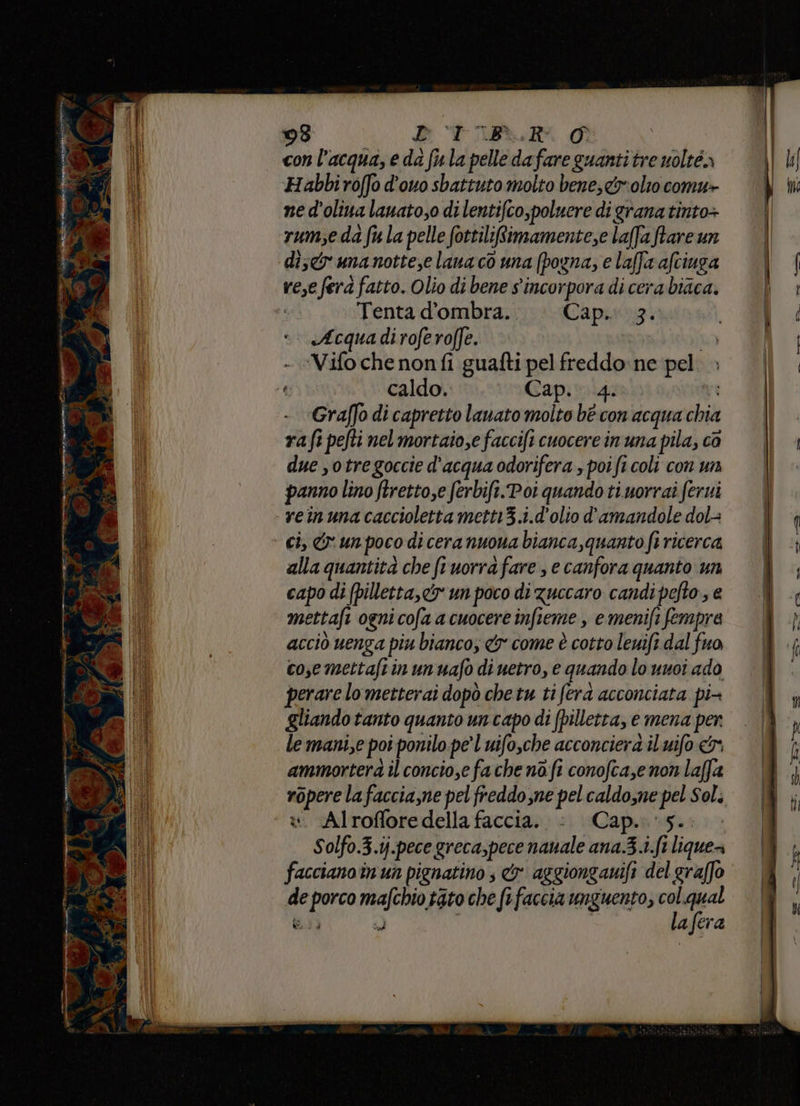 98 L I B R O
con l'acqua, e dà ſu la pelle da fare guanti tre uolte.
Habbi roſſo d'ouo sbattuto molto bene, & olio comu-
ne d'oliua lauato, o di lentiſco, poluere di grana tinto-
rum, e dà ſu la pelle ſottiliſsimamente, e laſſa ſtare un
dì, & una notte, e laua cō una ſpogna, e laſſa aſciuga
re, e ſerà fatto. Olio di bene s'incorpora di cera biāca.
Tenta d'ombra. Cap. 3.
Acqua di roſe roſſe.
Viſo che non ſi guaſti pel freddo ne pel
caldo. Cap. 4.
Graſſo di capretto lauato molto bē con acqua chia
ra ſi peſti nel mortaio, e facciſi cuocere in una pila, cō
due, o tre goccie d'acqua odorifera, poi ſi coli con un
panno lino ſtretto, e ſerbiſi. Poi quando ti uorrai ſerui
re in una caccioletta metti ℥.i. d'olio d'amandole dol-
ci, & un poco di cera nuoua bianca, quanto ſi ricerca
alla quantità che ſi uorrà fare, e canfora quanto un
capo di ſpilletta, & un poco di zuccaro candi peſto, e
mettaſi ogni coſa a cuocere inſieme, e meniſi ſempre
acciò uenga piu bianco, & come è cotto leuiſi dal fuo
co, e mettaſi in un uaſo di uetro, e quando lo uuoi ado
perare lo metterai dopò che tu ti ſerà acconciata pi-
gliando tanto quanto un capo di ſpilletta, e mena per
le mani, e poi ponilo pe'l uiſo, che acconcierà il uiſo &
ammorterà il concio, e fa che nō ſi conoſca, e non laſſa
rōpere la faccia, ne pel freddo, ne pel caldo, ne pel Sol.
Al roſſore della faccia. Cap. 5.
Solfo. ℥.ij. pece greca, pece nauale ana. ℥.i. ſi lique-
facciano in un pignatino, & aggiongauiſi del graſſo
de porco maſchio tāto che ſi faccia unguento, col qual
la ſera